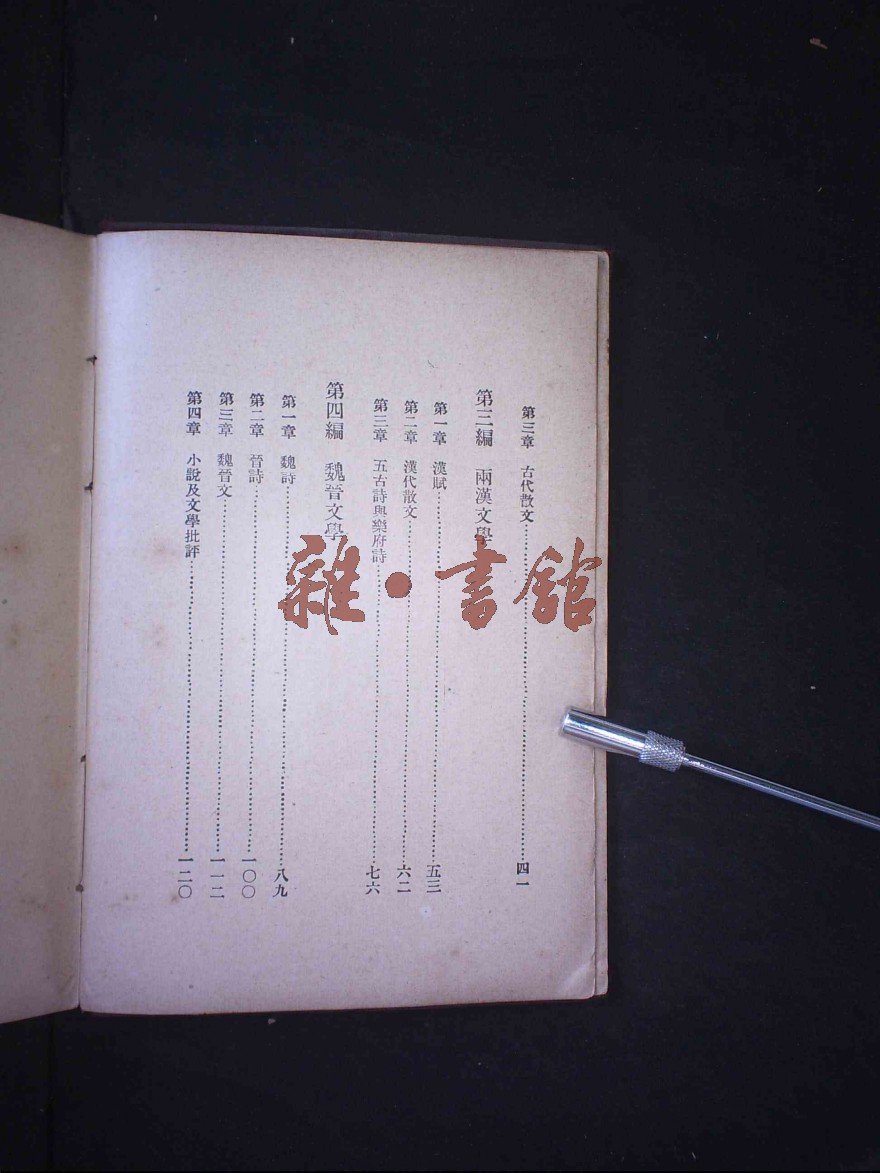 第三章　古代散文……四一
第三編　兩漢文學
第一章　漢賦……五三
第二章　漢代散文……六二
第三章　五古詩與樂府詩……七六
第四編　魏晉文學
第一章　魏詩……八九
第二章　晉詩……一〇〇
第三章　魏晉文……一一二
第四章　小說及文學批評……一二〇
雜·書館